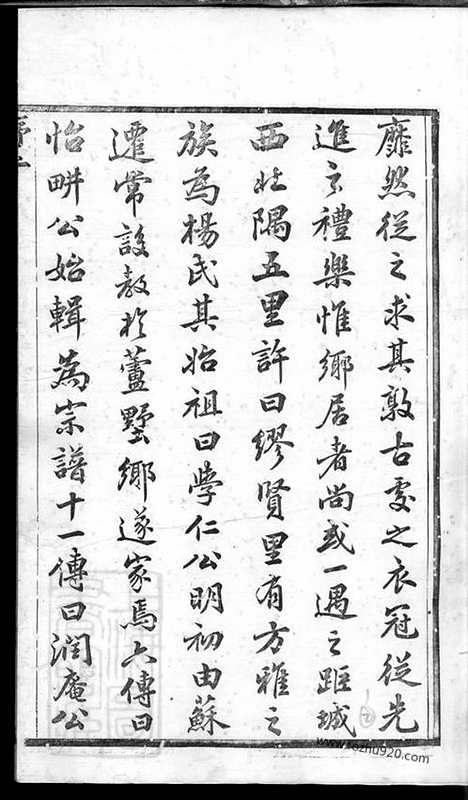 靡然從之求其敦古處之衣冠從先
進之禮樂惟鄉居者尚或一遇之距城
西北隅五里許曰繆賢里有方雅之
族為楊氏其始祖曰學仁公明初由蘇
遷常設教於蘆墅鄉遂家焉六傳曰
怡畊公始輯為宗譜十一傳曰潤庵公
www.fozhu920.com